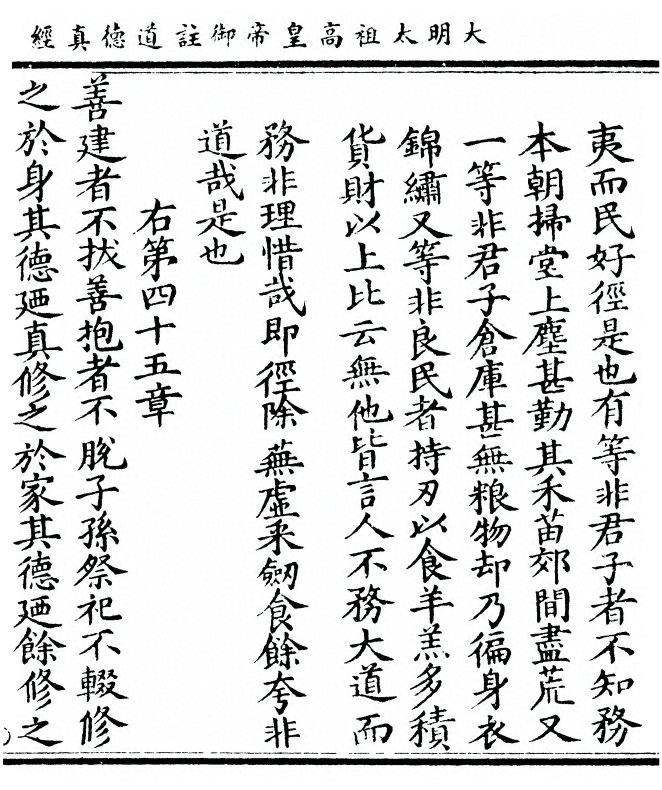 大明太祖高皇帝御註道德真經
夷而民好徑是也有等非君子者不知務
本朝掃堂上塵甚勤其禾苗郊間盡荒又
一等非君子倉庫甚無粮物却乃徧身衣
錦繡又等非良民者持刃以食羊羔多積
貨財以上比云無他皆言人不務大道而
務非理惜哉即徑除蕪虛采劒食餘夸非
道哉是也
右第四十五章
善建者不拔善抱者不脫子孫祭祀不輟修
之於身其德廼真修之於家其德廼餘修之